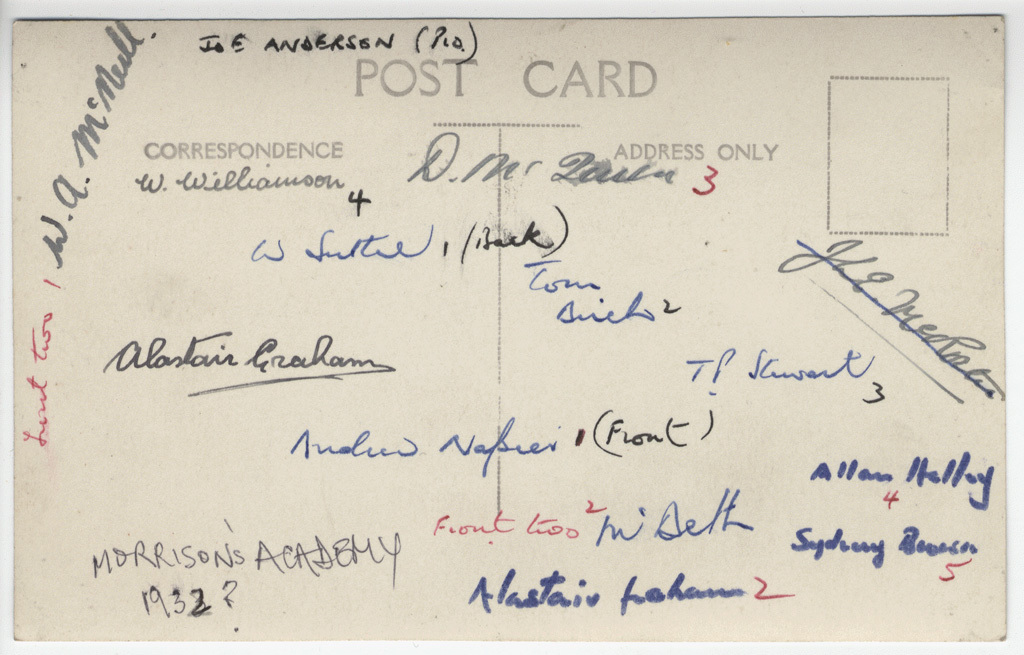 JOE ANDERSON (Pro.)
POST CARD
W. A. McNeill.
CORRESPONDENCE
ADDRESS ONLY
W. Williamson 4
D. Mc 3
W 1 (Back)
Tom
Birch 2
Alastair Graham
T P Stewart 3
Front two 1
Andrew Napier 1 (Front)
Allan 4
Front two 2
Sydney Brown 5
MORRISON'S ACADEMY
1932?
Alastair Graham 2